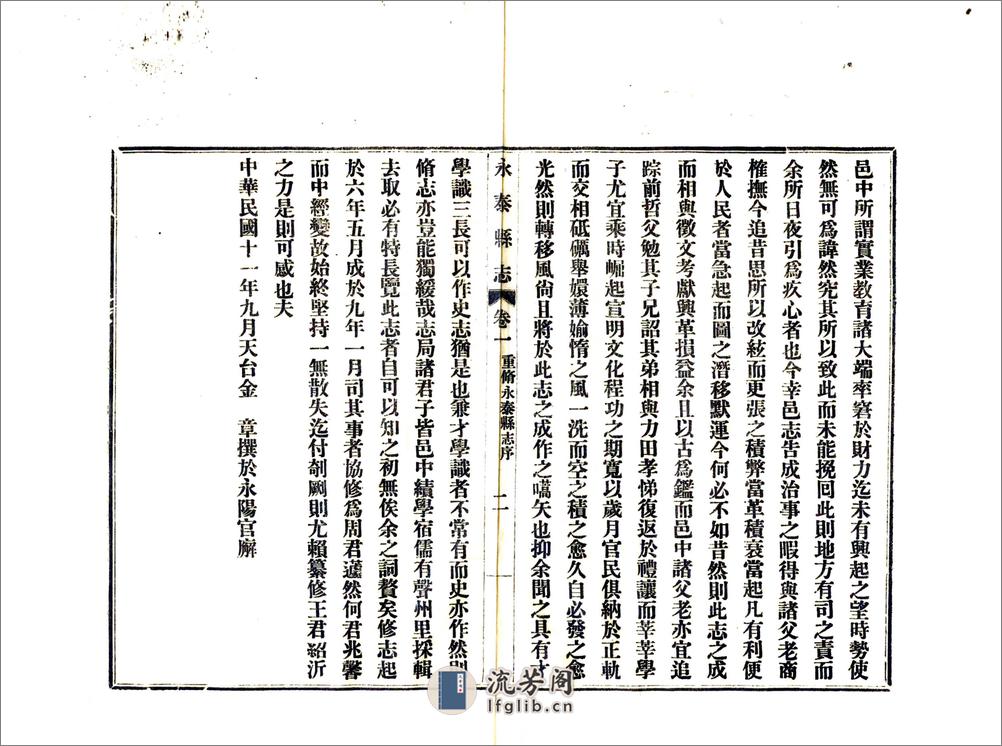 邑中所謂實業教育諸大端率窘於財力迄未有興起之望時勢使
然無可爲諱然究其所以致此而未能挽回此則地方有司之責而
余所日夜引爲疚心者也今幸邑志告成治事之暇得與諸父老商
榷撫今追昔思所以改絃而更張之積弊當革積衰當起凡有利便
於人民者當急起而圖之潛移默運今何必不如昔然則此志之成
而相與徵文考獻興革損益余且以古爲鑑而邑中諸父老亦宜追
踪前哲父勉其子兄詔其弟相與力田孝悌復返於禮讓而莘莘學
子尤宜乘時崛起宣明文化程功之期寬以歲月官民俱納於正軌
而交相砥礪舉嬛薄媮惰之風一洗而空之積之愈久自必發之愈
光然則轉移風尙且將於此志之成作之嚆矢也抑余聞之具有才
永泰縣志 卷一 重脩永泰縣志序 二
學識三長可以作史志猶是也兼才學識者不常有而史亦作然則
脩志亦豈能獨緩哉志局諸君子皆邑中績學宿儒有聲州里採輯
去取必有特長覽此志者自可以知之初無俟余之詞贅矣修志起
於六年五月成於九年一月司其事者協修爲周君蘧然何君兆馨
而中經變故始終堅持一無散失迄付剞劂則尤賴纂修王君紹沂
之力是則可感也夫
中華民國十一年九月天台金 章撰於永陽官廨
流芳阁
lfglib.cn